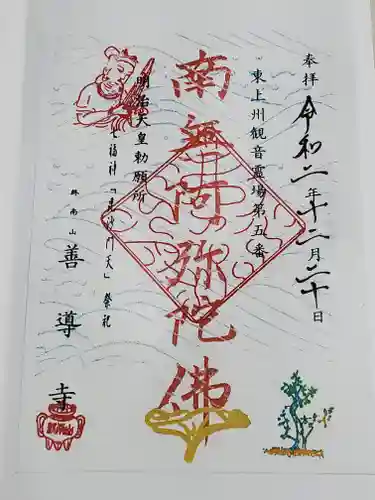 奉拝 令和二年十二月二十日
東上州観音霊場第五番
南無阿弥陀佛
明治天皇勅願所
七福神「毘沙門天」祭祀
終南山
善導寺